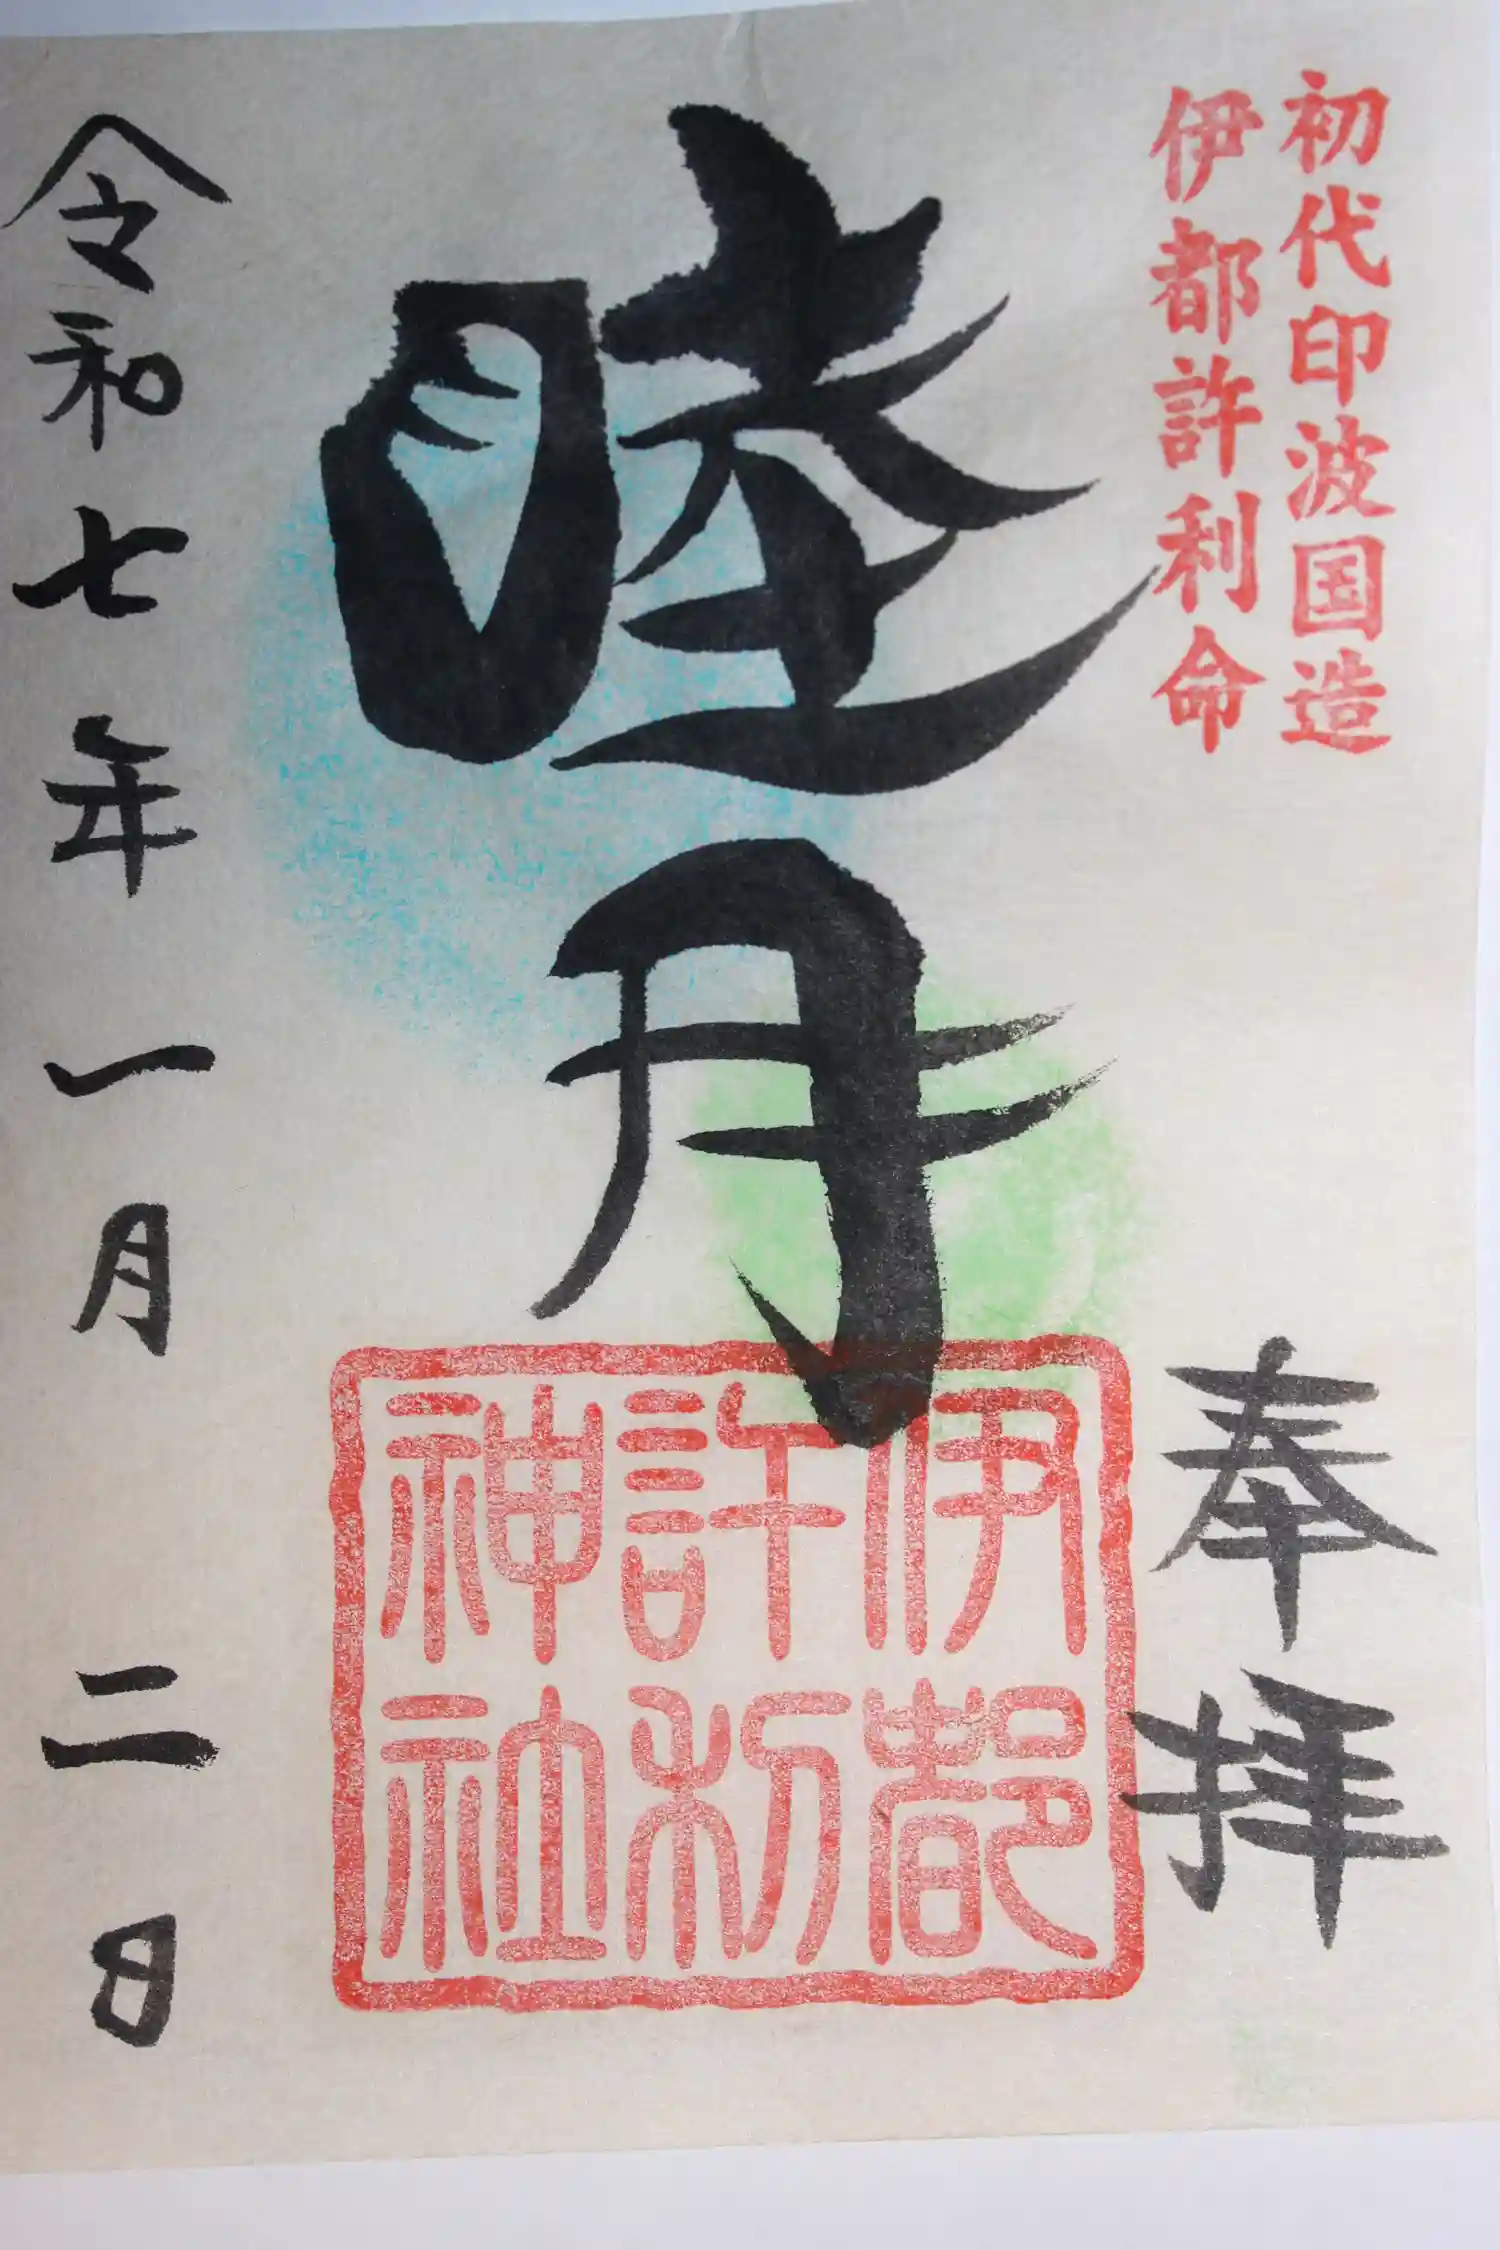 初代印波国造
伊都許利命
奉拝
睦月
伊都
許利
神社
令和七年一月二日